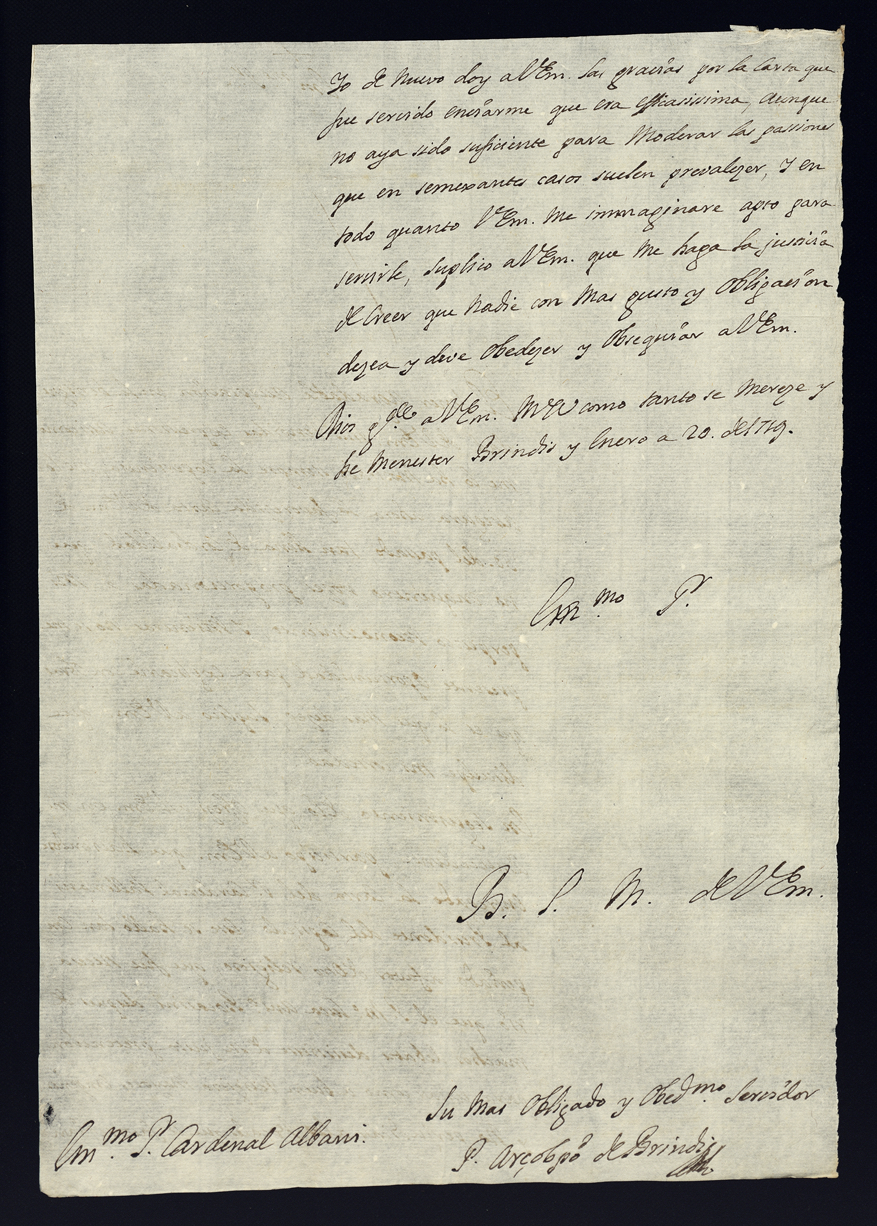 Yo de nuevo doy a V Em. las gracias por la Carta que
fue servido enviarme que era efficasissima, aunque
no aya sido suficiente para Moderar las passiones
que en semexantes casos suelen prevalezer, y en
todo quanto V Em. me immaginare apto para
servirle, suplico a V Em. que me haga la justicia
de Creer que nadie con mas gusto y obligacion
dezea y deve obedezer y obsequiar a V Em.
Dios g.de a V Em. como tanto se mereze y
he menester Brindis y Enero a 20. de 1719.
Em.mo S.r
B. L. M. de V Em.
Su mas obligado y obed.mo Servidor
P. Arçobpõ de Brindis
Em.mo S.r Cardenal Albani.